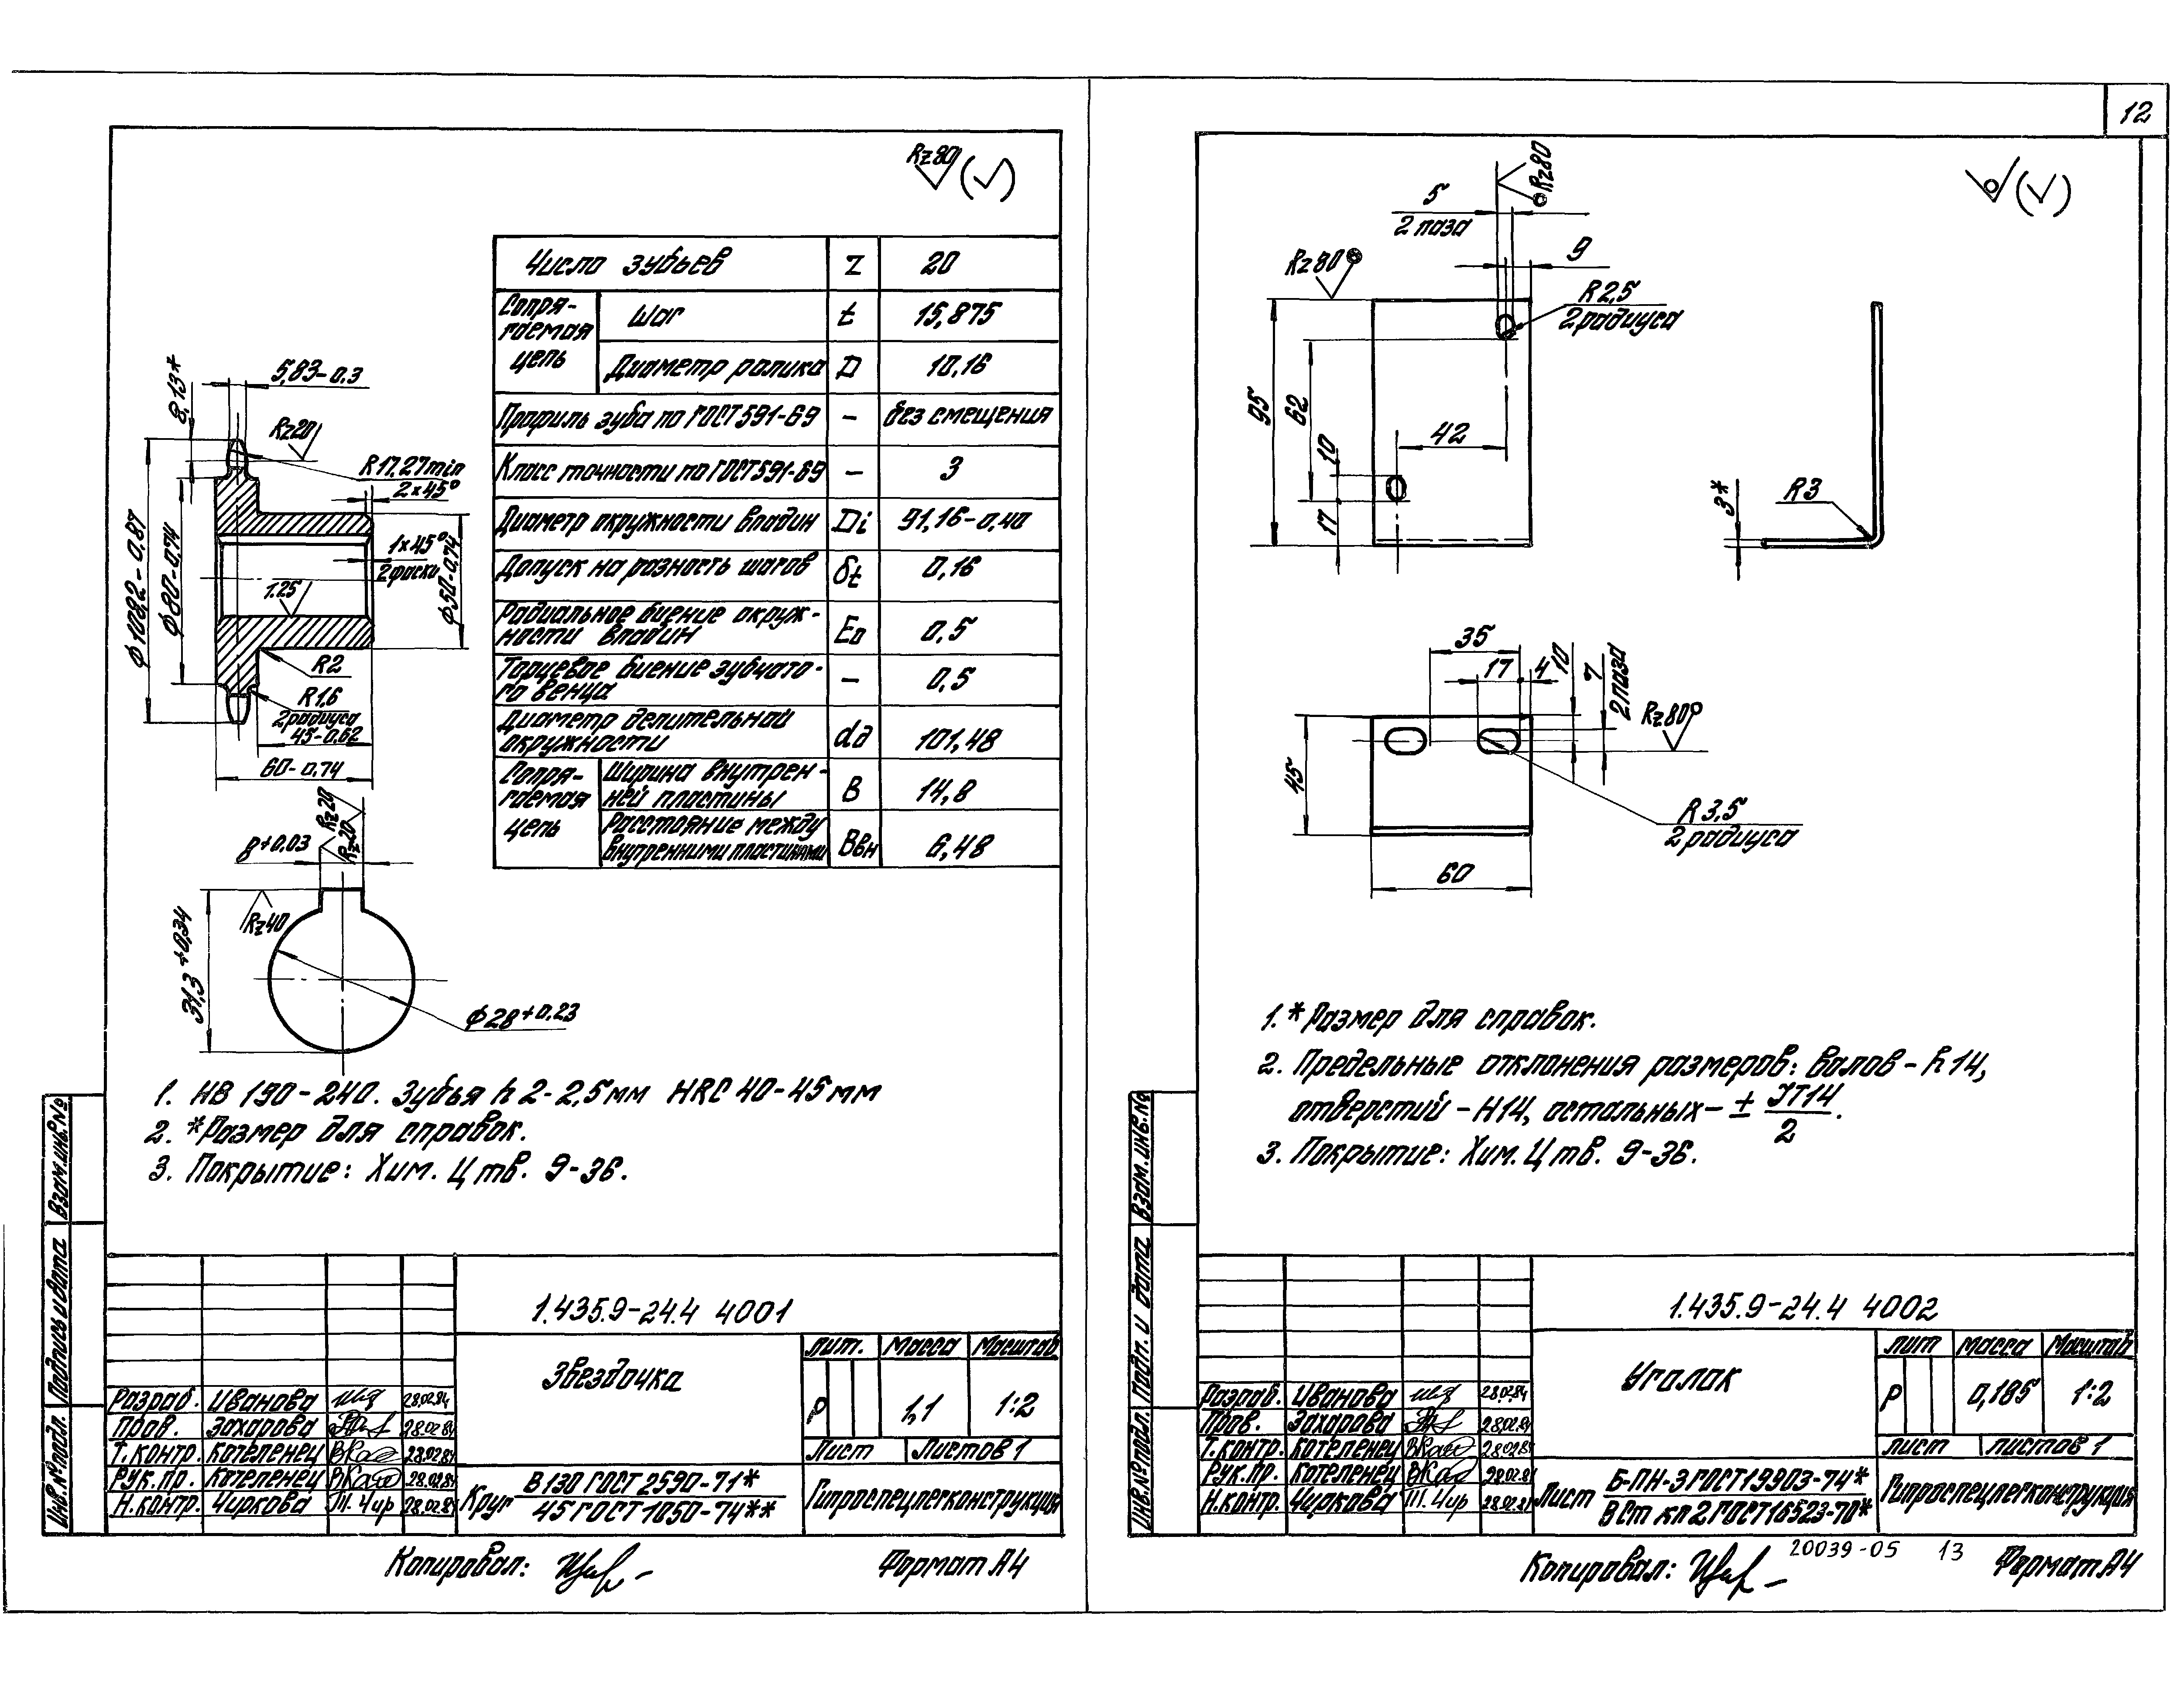 12
Rz80 (√)
Число зубьев z 20
Сопря-
гаемая
цепь
Шаг t 15,875
Диаметр ролика D 10,16
Профиль зуба по ГОСТ 591-69 – без смещения
Класс точности по ГОСТ 591-69 – 3
Диаметр окружности впадин Di 91,16-0,40
Допуск на разность шагов δt 0,16
Радиальное биение окруж-
ности впадин Eо 0,5
Торцевое биение зубчато-
го венца – 0,5
Диаметр делительной
окружности dд 101,48
Сопря-
гаемая
цепь
Ширина внутрен-
ней пластины B 14,8
Расстояние между
внутренними пластинами Bвн 6,48
5,83-0,3
8,13*
Rz20
R17,27min
2×45°
1×45°
2 фаски
ϕ108,2-0,87
ϕ80-0,74
ϕ50-0,74
1.25
R2
R1,6
2 радиуса
45-0,62
60-0,74
8+0,03
Rz20
Rz20
Rz40
31,3+0,34
ϕ28+0,23
1. HB 190-240. Зубья h 2-2,5мм HRC 40-45мм
2. *Размер для справок.
3. Покрытие: Хим. Ц тв. 9-36.
Взам.инв.№
Подпись и дата
Инв.№подл.
1.435.9-24.4 4001
Звездочка
Лит. Масса Масштаб
Р 1,1 1:2
Лист Листов 1
Разраб. Иванова 28.02.84
Пров. Захарова 28.02.84
Т.контр. Котеленец 28.02.84
Рук.пр. Котеленец 28.02.84
Н.контр. Чиркова 28.02.84
Круг В130 ГОСТ 2590-71*
45 ГОСТ 1050-74**
Гипроспецлегконструкция
Копировал:
Формат А4
(√)
5
2 паза
Rz80
9
Rz80
R2,5
2 радиуса
95
62
10
17
42
3*
R3
35
17
4
10
7
2 паза
Rz80
45
R3,5
2 радиуса
60
1. *Размер для справок.
2. Предельные отклонения размеров: валов - h14,
отверстий - H14, остальных - ± JT14/2.
3. Покрытие: Хим. Ц тв. 9-36.
Взам.инв.№
Подп. и дата
Инв.№подл.
1.435.9-24.4 4002
Уголок
Лит Масса Масштаб
Р 0,185 1:2
Лист Листов 1
Разраб. Иванова 28.02.84
Пров. Захарова 28.02.84
Т.контр. Котеленец 28.02.84
Рук.пр. Котеленец 28.02.84
Н.контр. Чиркова 28.02.84
Лист Б-ПН-3 ГОСТ 19903-74*
ВСт кп2 ГОСТ 16523-70*
Гипроспецлегконструкция
20039-05 13
Копировал:
Формат А4